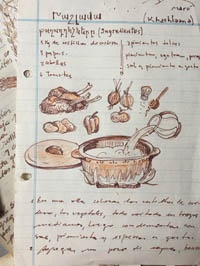 Խաշլամա
(Khashlama)
բաղադրիչները (Ingredientes)
de costillas de cordero
3 papas
3 cebollas
6 Tomates
2 pimientos dulces
pimienta,
sal y pimienta a gusto
En una olla colocar las costillas de cordero,
los vegetales, todo cortado en trozos
medianos, luego con
sal, pimienta y especias a gusto
un poco de agua,